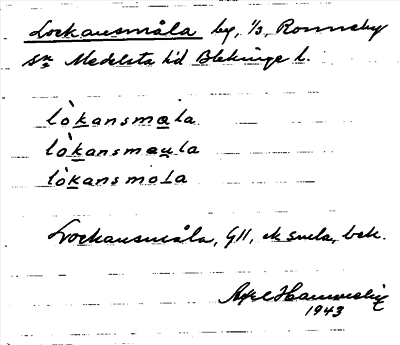 Lockansmåla by, 1/3, Ronneby
sn Medelsta hd Blekinge l.
lòkansmala
lòkansmaula
lòkansmola
Lockansmåla, GH, ek
Axel
1943